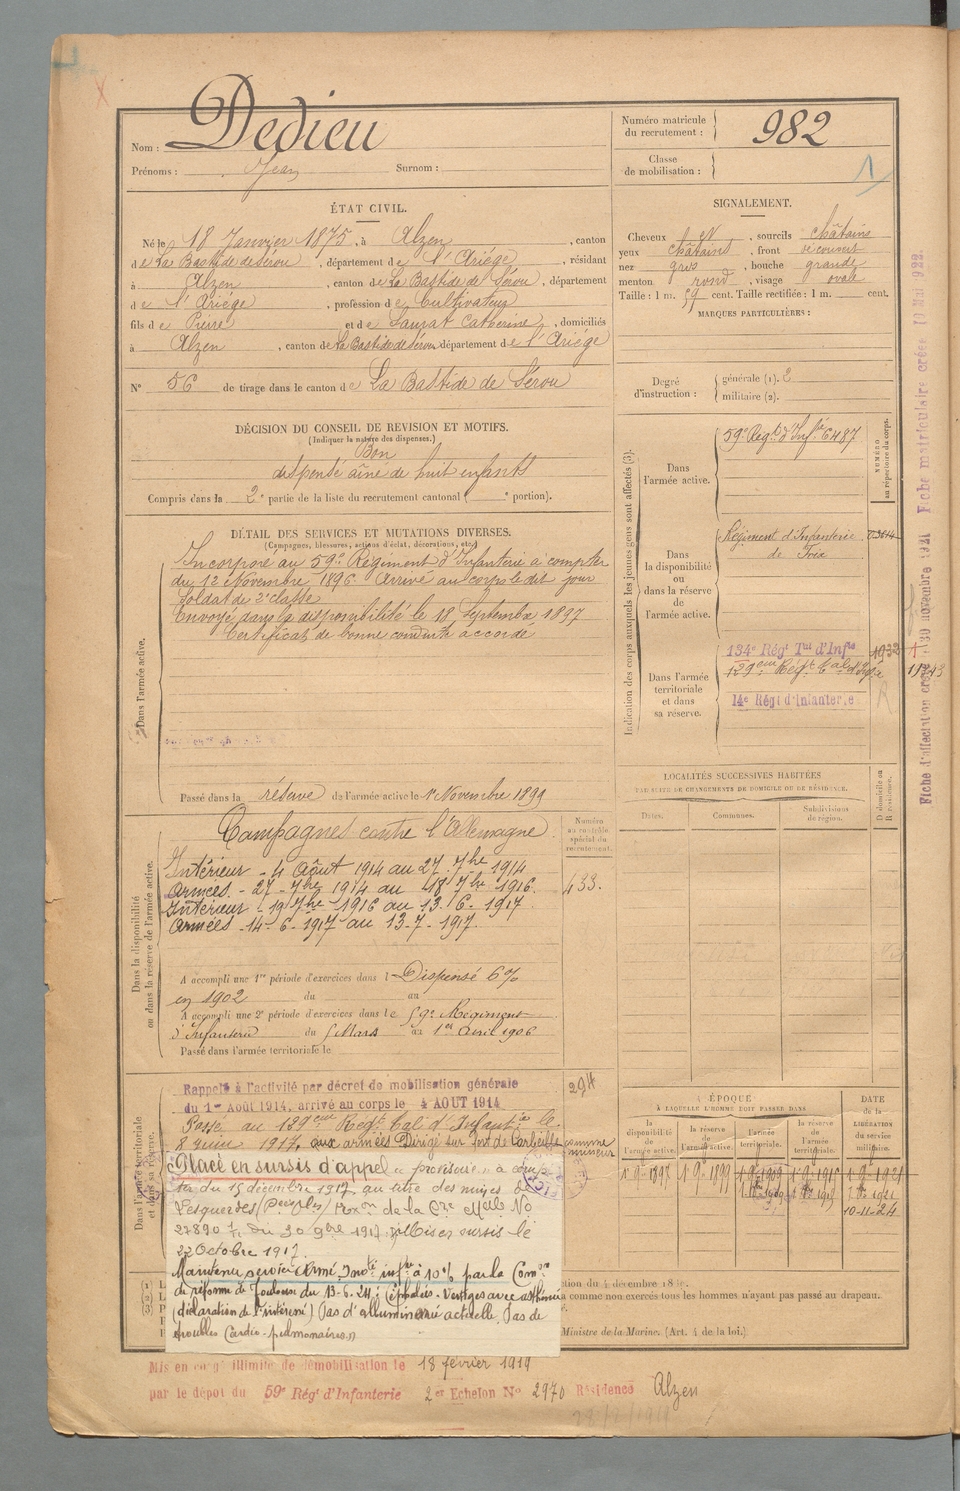 Nom : Dedieu
Prénoms : Jean Surnom :
Numéro matricule
du recrutement : 982
Classe
de mobilisation :
ÉTAT CIVIL.
Né le 18 Janvier 1875, à Alzen, canton
de La Bastide de Sérou, département de l'Ariège, résidant
à Alzen, canton de La Bastide de Sérou, département
de l'Ariége, profession de Cultivateur
fils de Pierre et de Saurat Catherine, domiciliés
à Alzen, canton de La Bastide de Sérou, département de l'Ariége
N° 56 de tirage dans le canton de La Bastide de Sérou
SIGNALEMENT.
Cheveux N, sourcils châtains
yeux châtains, front découvert
nez gros, bouche grande
menton rond, visage ovale
Taille : 1 m. 59 cent. Taille rectifiée : 1 m. cent.
MARQUES PARTICULIÈRES :
Degré
d'instruction :
générale (1). 2
militaire (2).
DÉCISION DU CONSEIL DE REVISION ET MOTIFS.
(Indiquer la nature des dispenses.)
Bon
dispensé aîné de huit enfants
Compris dans la 2e partie de la liste du recrutement cantonal ( e portion).
DÉTAIL DES SERVICES ET MUTATIONS DIVERSES.
(Campagnes, blessures, actions d'éclat, décorations, etc.)
Dans l'armée active.
Incorporé au 59e Régiment d'Infanterie à compter
du 12 Novembre 1896. Arrivé au corps le dit jour
Soldat de 2e classe
Envoyé dans la disponibilité le 18 Septembre 1897
Certificat de bonne conduite accordé
Passé dans la réserve de l'armée active le 1er Novembre 1899
Indication des corps auxquels les jeunes gens sont affectés (3).
NUMÉRO
au répertoire du corps.
Dans
l'armée active.
59e Régt d'Infie 6487
Dans
la disponibilité
ou
dans la réserve
de
l'armée active.
Régiment d'Infanterie
de Foix
Dans l'armée
territoriale
et dans
sa réserve.
134e Régt Tal d'Infie
129eme Régt Tal d'Infie
14e Régt d'Infanterie
Fiche d'affectation créée 30 novembre 1921 Fiche matriculaire créée 10 Mai 1922.
Dans la disponibilité
ou dans la réserve de l'armée active.
Campagnes contre l'Allemagne
Intérieur - 4 Août 1914 au 27. 7bre 1914
Armées. - 27 - 7bre 1914 au 18 7bre 1916.
Intérieur - 19 7bre 1916 au 13. 6 - 1917
Armées - 14 - 6 - 1917 au 13 - 7 - 1917.
Numéro
au contrôle
spécial du
recrutement.
433.
A accompli une 1re période d'exercices dans l Dispensé 6%
en 1902 du au
A accompli une 2e période d'exercices dans le 59e Régiment
d'Infanterie du 5 Mars au 1er Avril 1906
Passé dans l'armée territoriale le
LOCALITÉS SUCCESSIVES HABITÉES
PAR SUITE DE CHANGEMENTS DE DOMICILE OU DE RÉSIDENCE.
Dates.
Communes.
Subdivisions
de région.
D domicile ou
R résidence.
Dans l'armée territoriale
et dans sa réserve.
Rappelé à l'activité par décret de mobilisation générale
du 1er Août 1914, arrivé au corps le 4 AOUT 1914
294
Passé au 129eme Régt Tal d'Infantie le
8 Juin 1917, aux armées. Dirigé sur comme
mineur
Placé en sursis d'appel "provisoire" à comp
ter du 15 décembre 1917 au titre des mines de
27890 du 30 9bre 1917. Mis en sursis le
22 Octobre 1917.
Maintenu service armé. Inapté infie à 10% par la Comon
de réforme de Toulouse du 13-6-24 : Céphalées - Vertiges avec asthénie
(déclaration de l'intéressé) Pas d'albuminurie actuelle. Pas de
troubles cardio-pulmonaires.
ÉPOQUE
À LAQUELLE L'HOMME DOIT PASSER DANS
DATE
de la
LIBÉRATION
du service
militaire.
la
disponibilité
de
l'armée active.
la réserve
de
l'armée active.
l'armée
territoriale.
la réserve
de
l'armée
territoriale.
1 9 1897 1 9 1899 1 9bre 1909 1 9 1915 1 9 1921
10-11-24
ction du 4 décembre 18
a comme non exercés tous les hommes n'ayant pas passé au drapeau.
Ministre de la Marine. (Art. 4 de la loi.)
Mis en congé illimité de démobilisation le 18 février 1919
par le dépôt du 59e Régt d'Infanterie 2er Echelon No 2970 Résidence Alzen